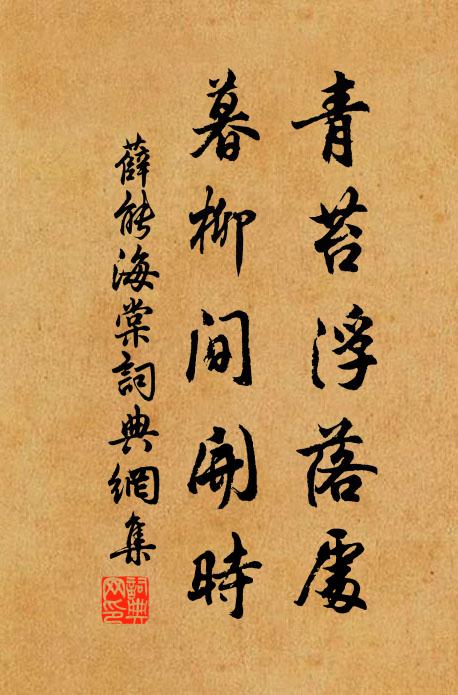 青苔浮落處
暮柳間開時
薛能海棠詞典網集
詞典網印